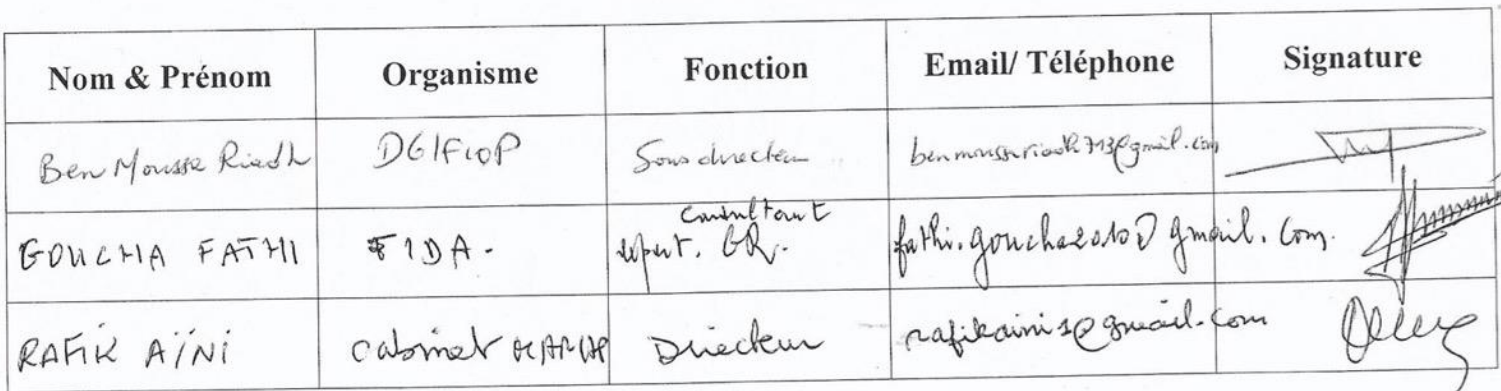 Nom & Prénom Organisme Fonction Email/ Téléphone Signature
Ben Mousse Riadh DG/FIOP Sous directeur
GOUCHA FATHI FIDA. consultant
expert. GR. fathi.goucha2010@gmail.com.
RAFIK AÏNI Cabinet Directeur rafikaini1@gmail.com